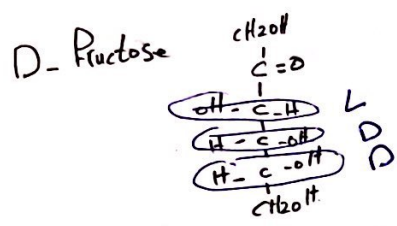 D_ Fructose
CH2OH
C=O
OH - C - H L
H - C - OH D
H - C - OH D
CH2OH